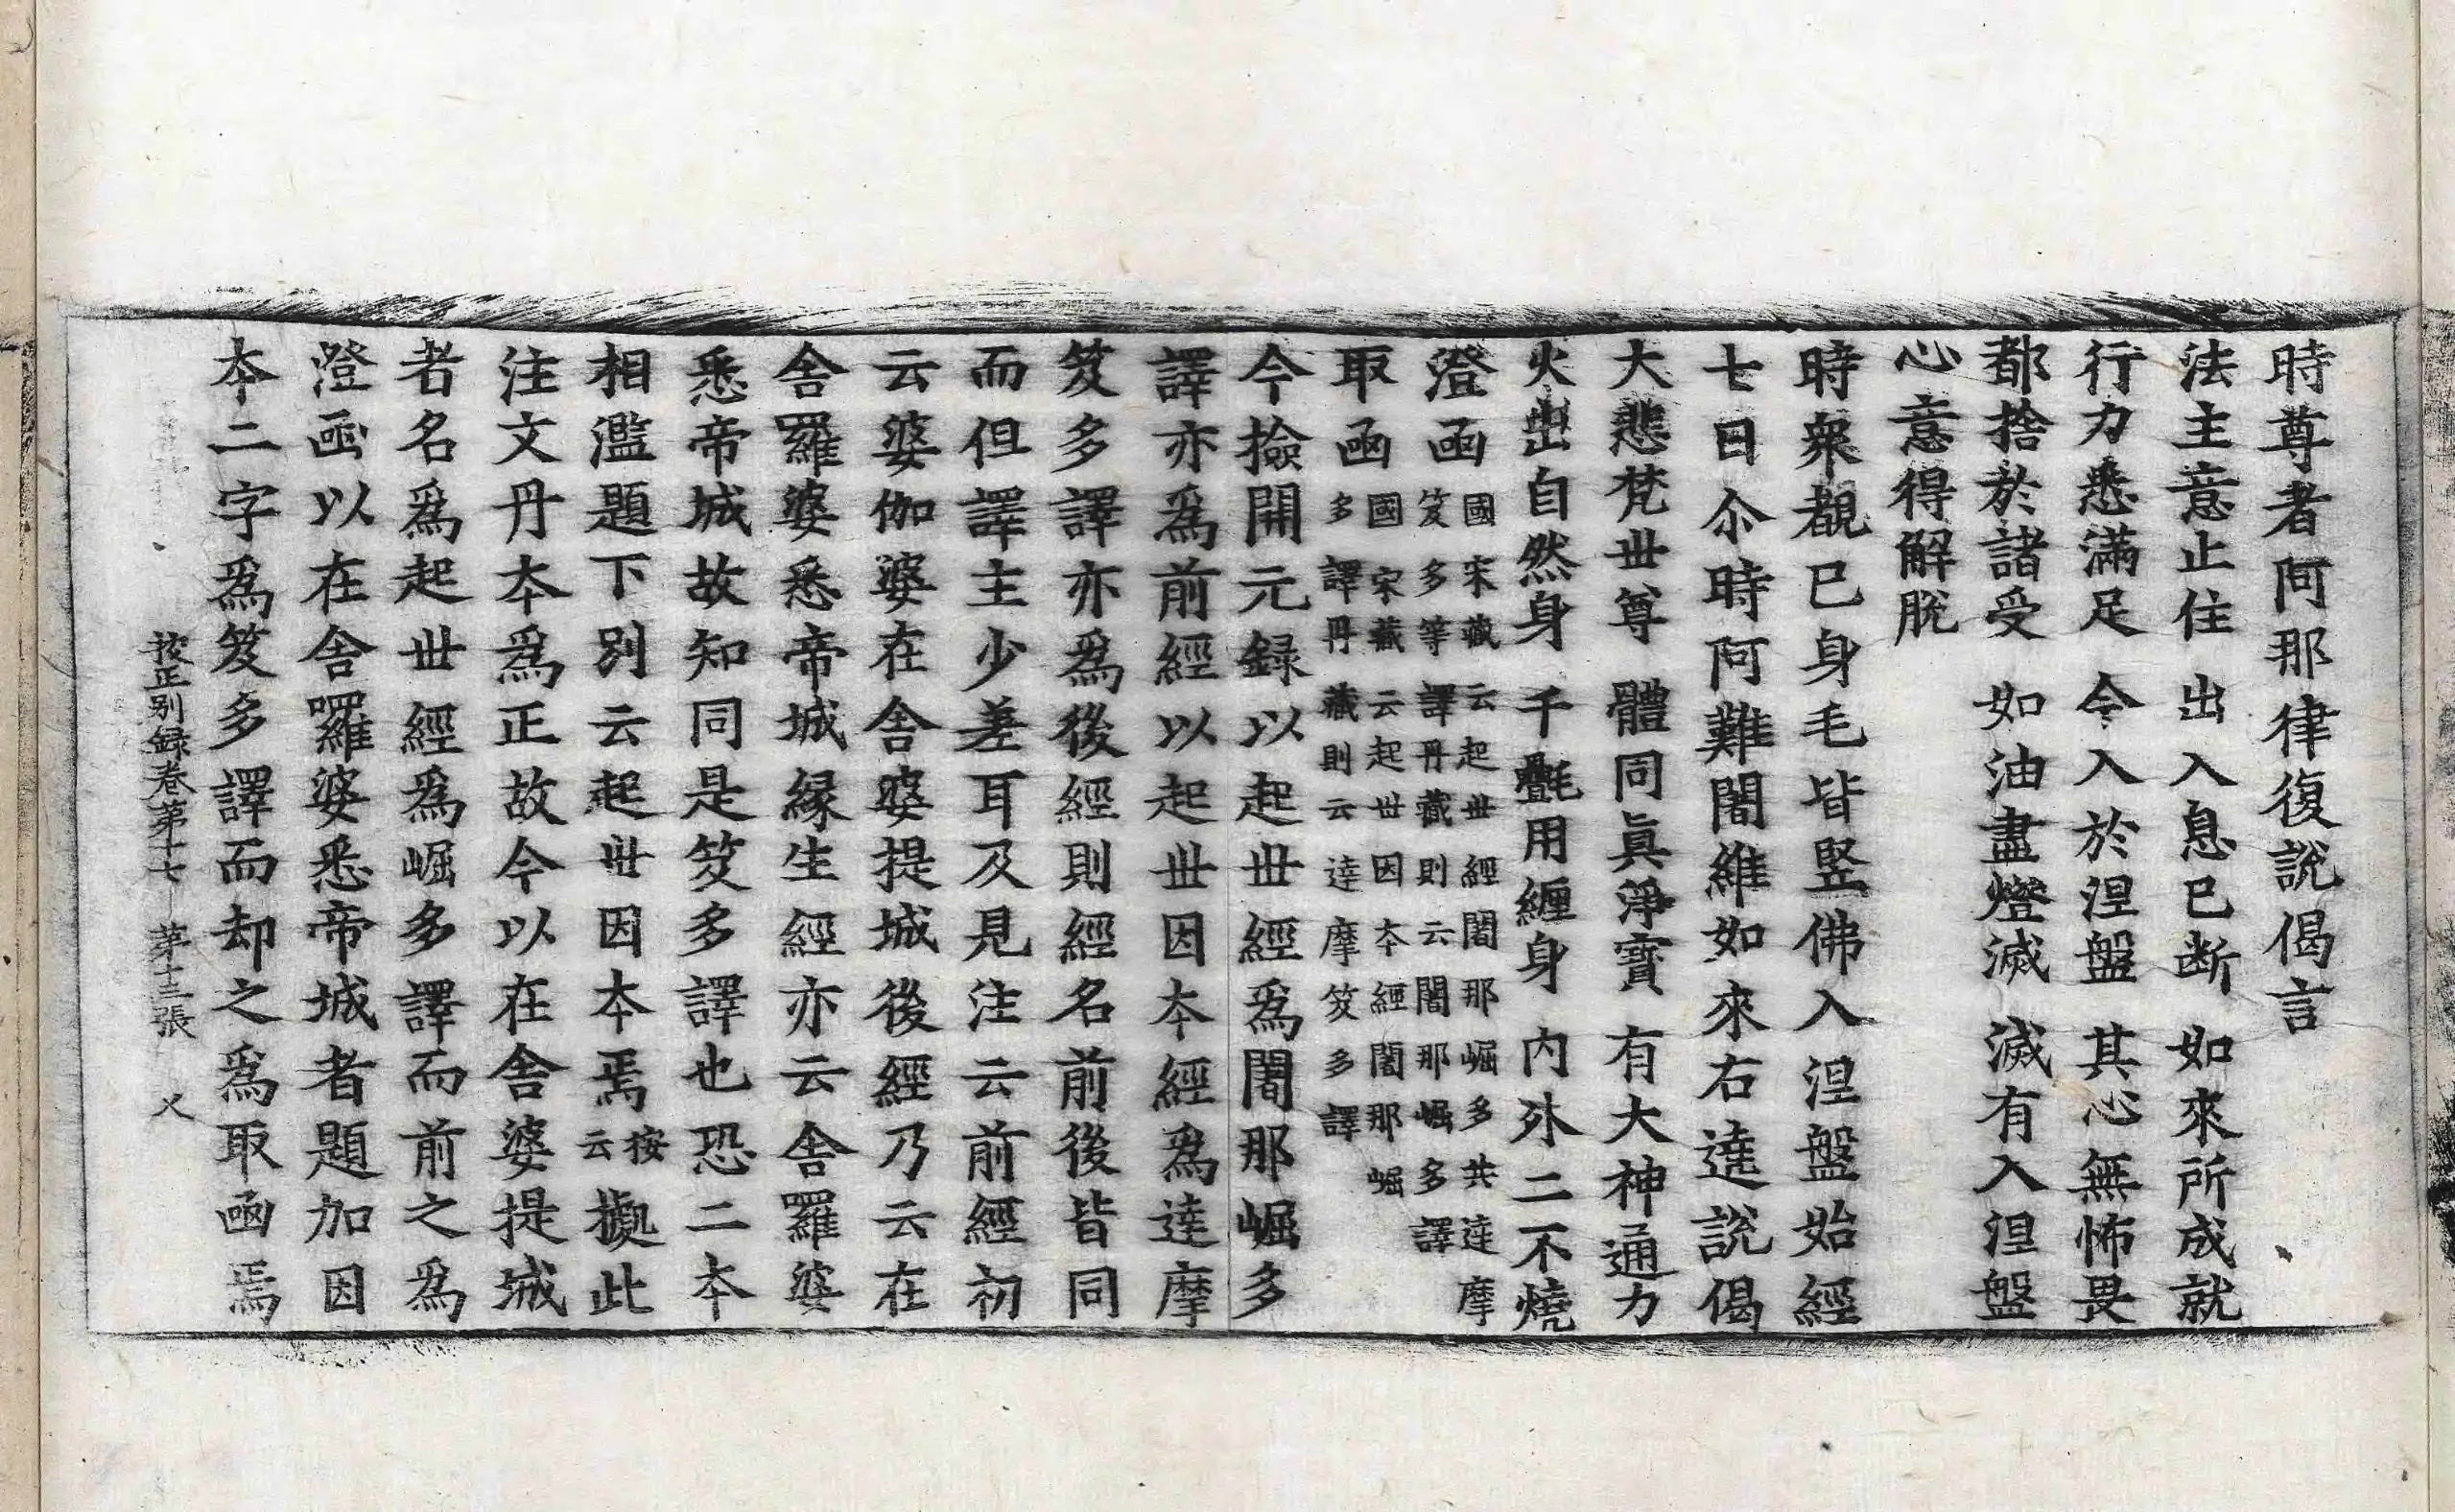 時尊者阿那律復說偈言
法主意止住 出入息已断 如來所成就
行力悉滿足 令入於涅盤 其心無怖畏
都捨於諸受 如油盡燈滅 滅有入涅盤
心意得解脫
時衆覩已身毛皆竪佛入涅盤始經
七日尒時阿難闍維如來右遶說偈
大悲梵世尊 體同眞淨寶 有大神通力
火出自然身 千㲲用纏身 內外二不燒
澄函國宋藏云起世經闍那崛多共達摩
笈多等譯丹藏則云闍那崛多譯
取函國宋藏云起世因本經闍那崛
多譯丹藏則云達摩笈多譯
今撿開元録以起世經爲闍那崛多
譯亦爲前經以起世因本經爲達摩
笈多譯亦爲後經則經名前後皆同
而但譯主少差耳及見注云前經初
云婆伽婆在舍婆提城後經乃云在
舍羅婆悉帝城緣生經亦云舍羅婆
悉帝城故知同是笈多譯也恐二本
相濫題下別云起世因本焉按云擬此
注文丹本爲正故今以在舍婆提城
者名爲起世經爲崛多譯而前之爲
澄函以在舍囉婆悉帝城者題加因
本二字爲笈多譯而却之爲取函焉
挍正別録卷第十七 第十三張 乂